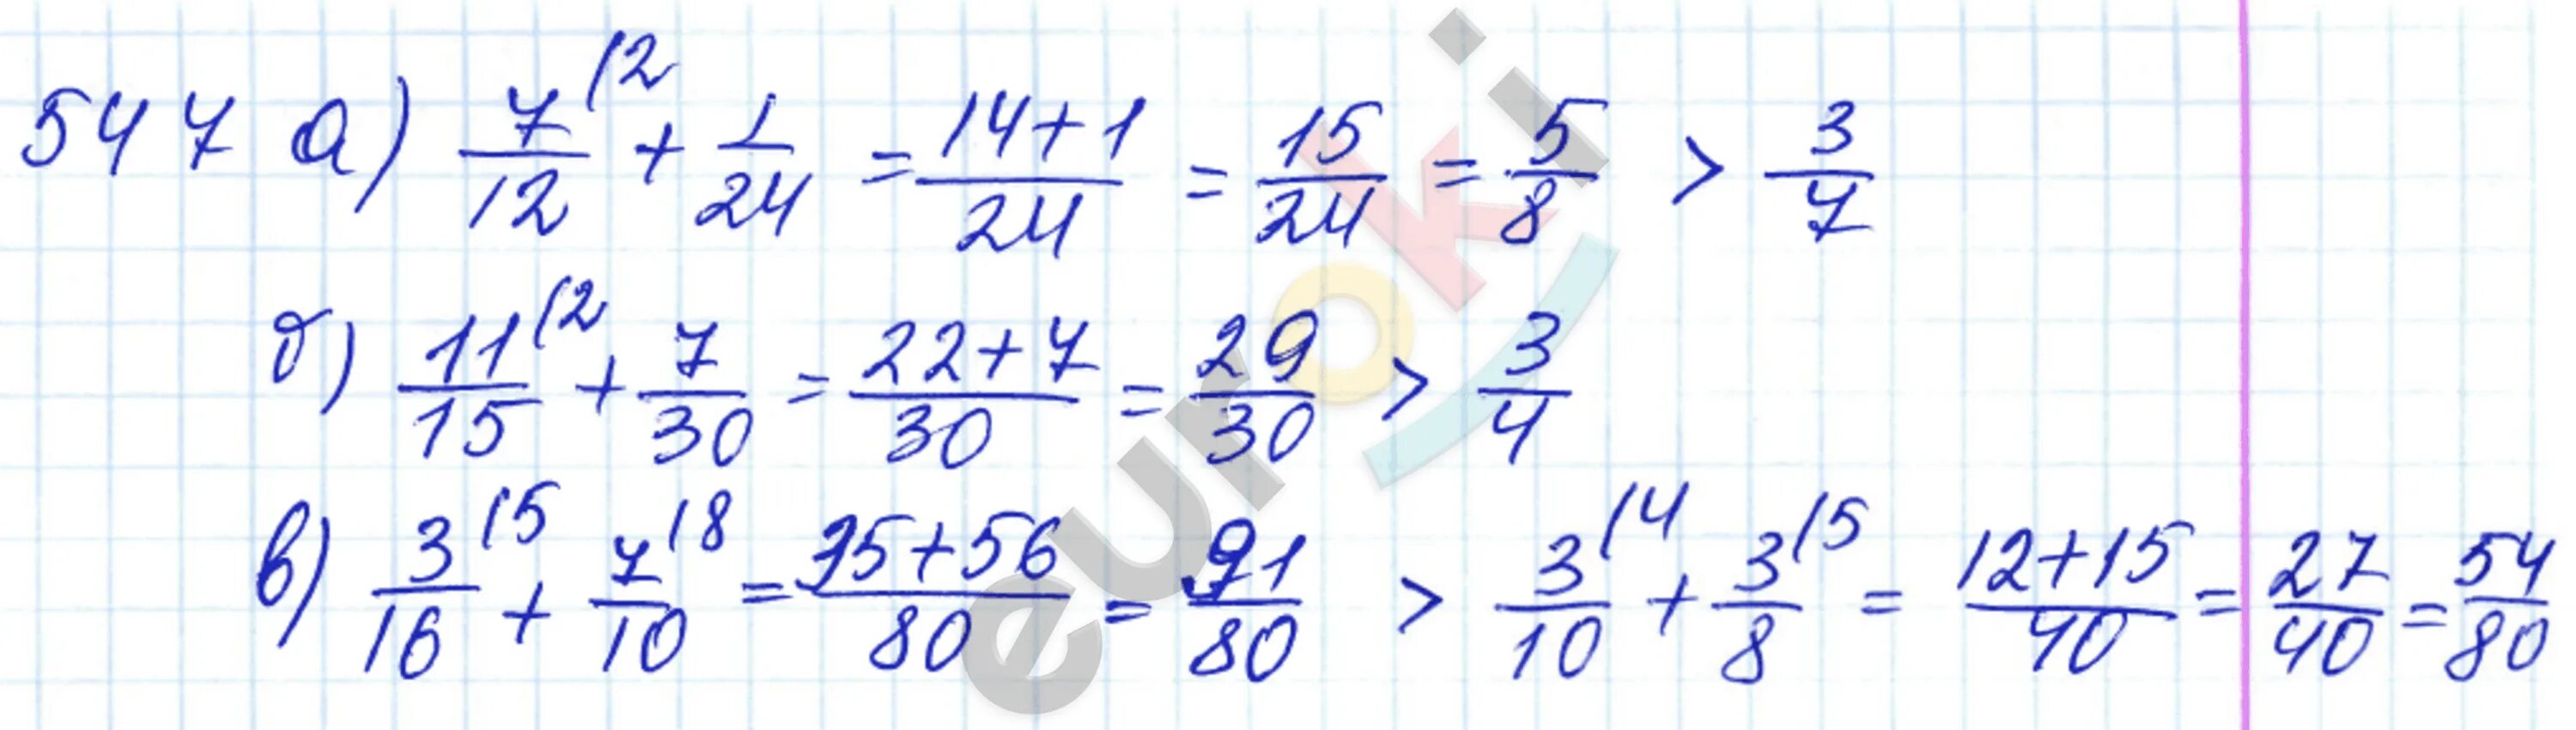 547 а) 7/12 (2 + 1/24 = 14+1/24 = 15/24 = 5/8 > 3/7
б) 11/15 (2 + 7/30 = 22+7/30 = 29/30 > 3/4
в) 3/16 (5 + 7/10 (8 = 35+56/80 = 91/80 > 3/10 (4 + 3/8 (5 = 12+15/40 = 27/40 = 54/80
euroki